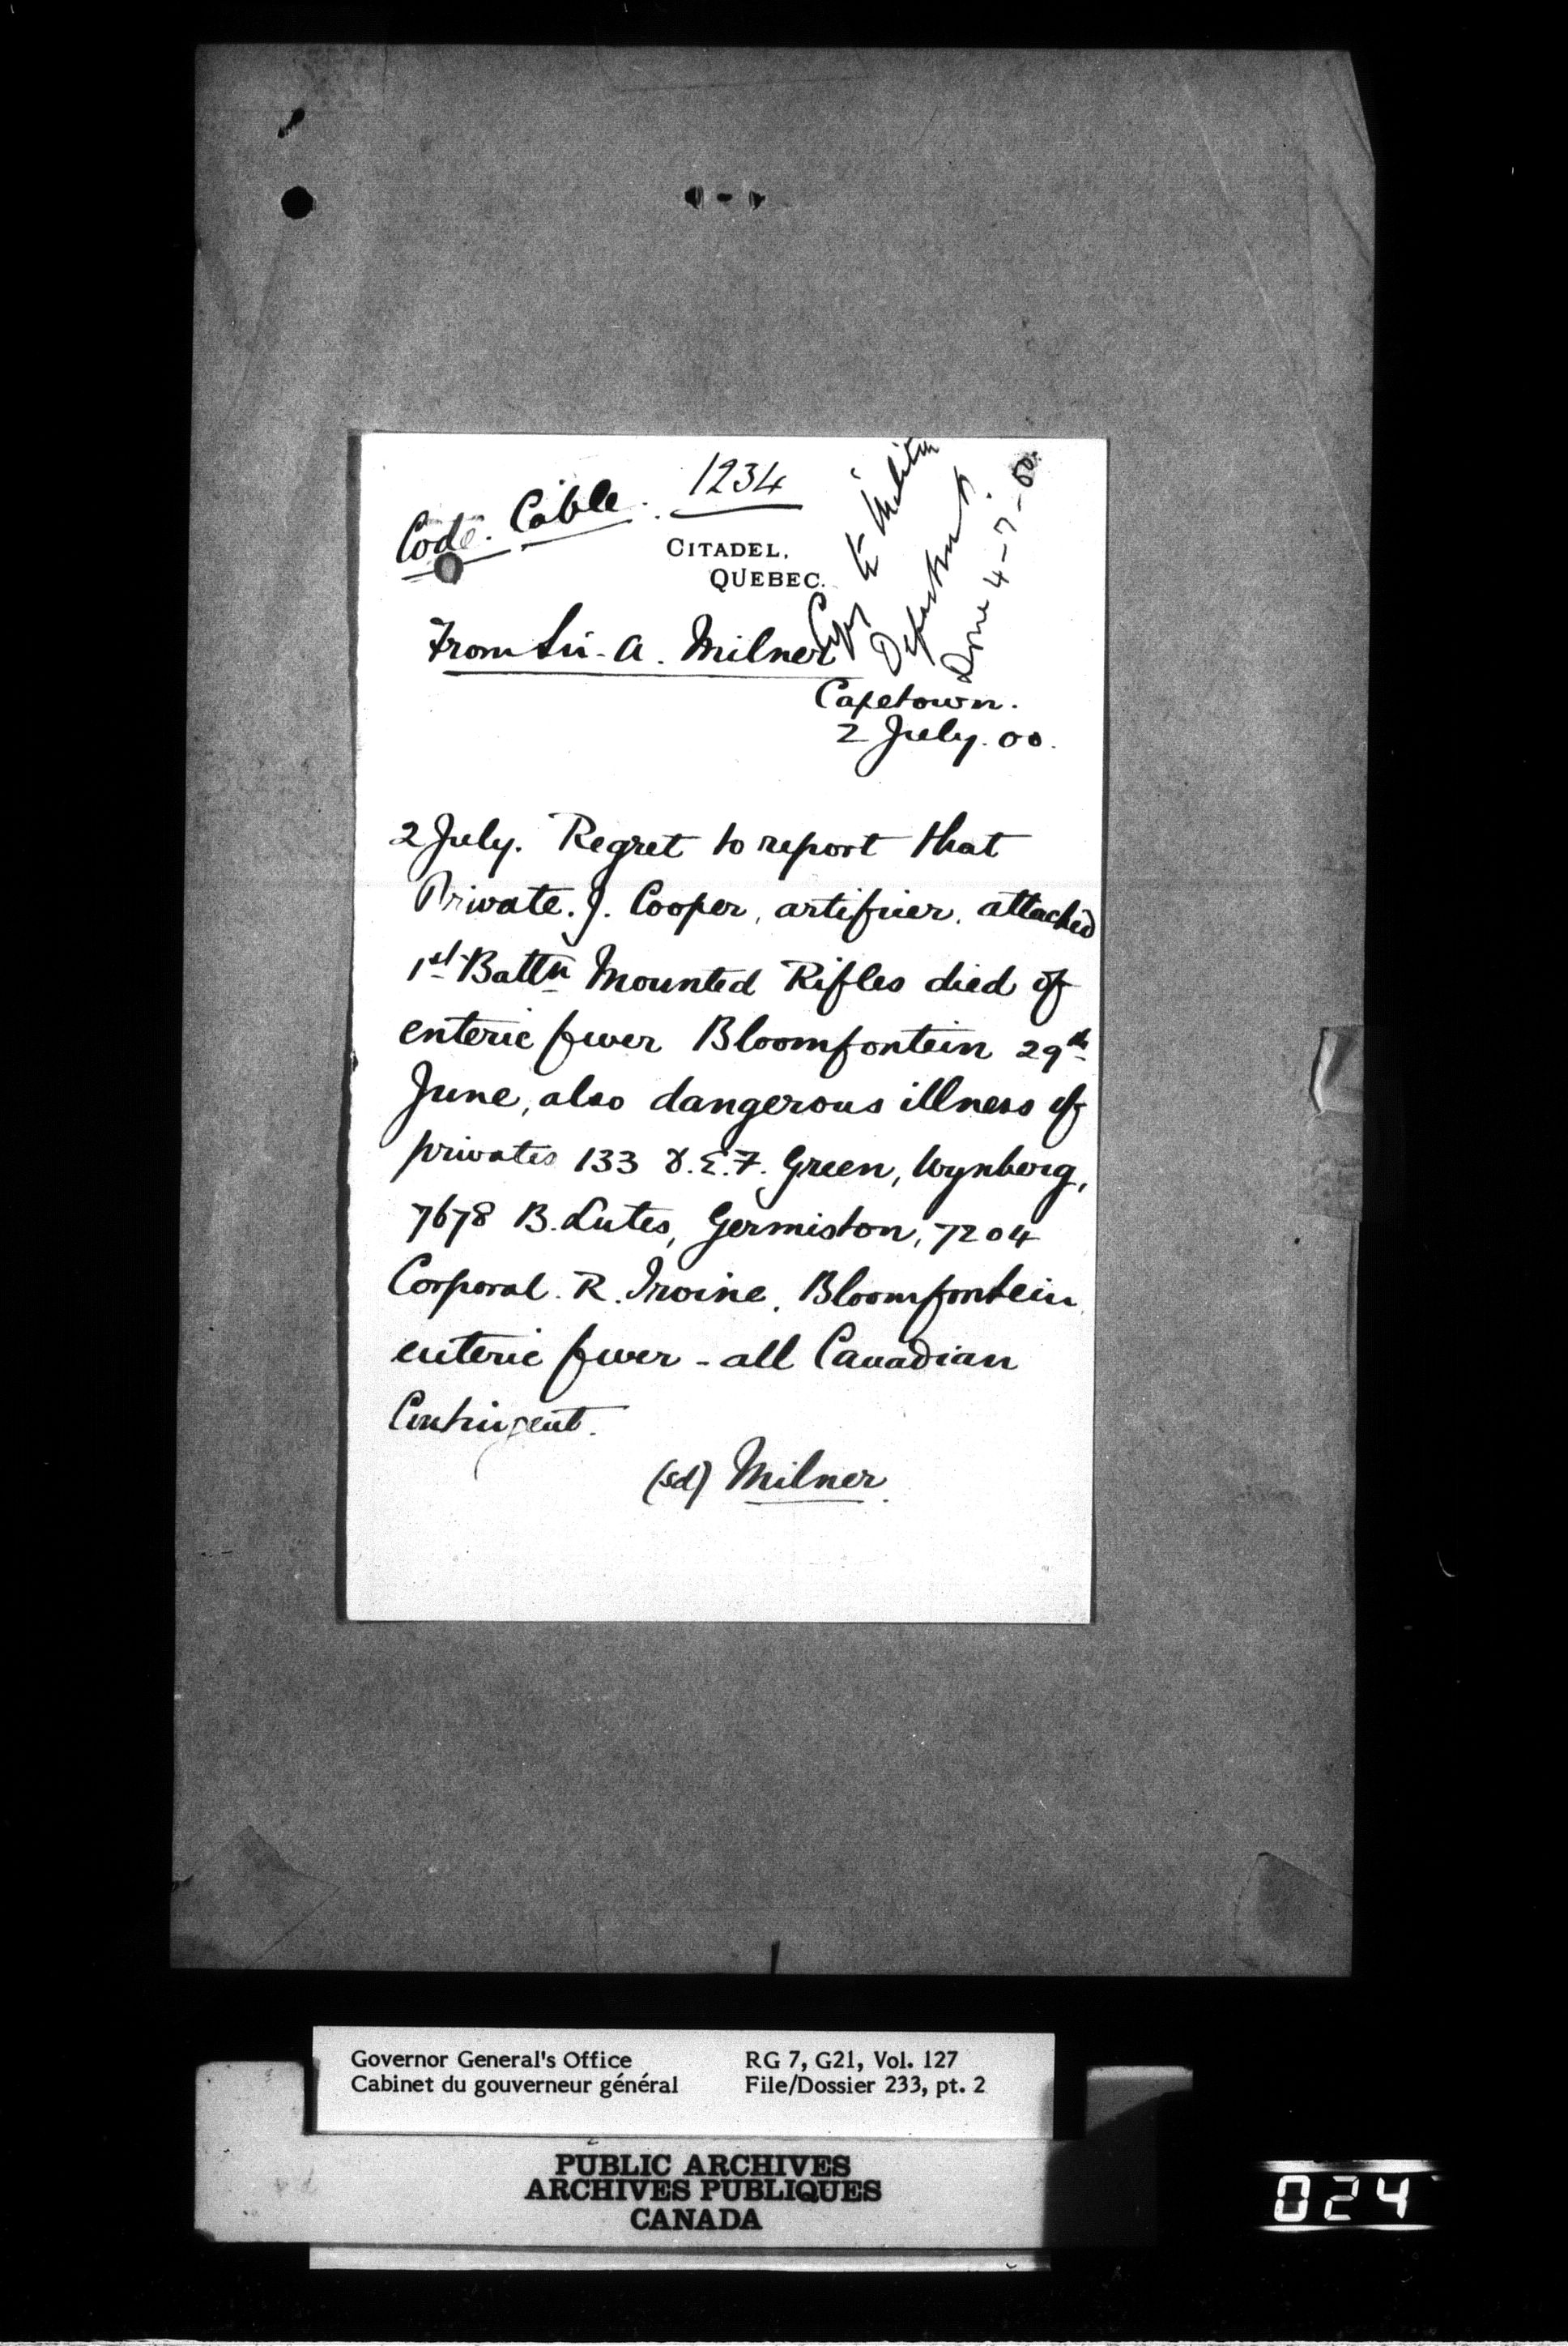 1234
Code. Cable.
CITADEL,
QUEBEC.
Copy to Militia
Department.
Done 4-7-00.
From Sir. A. Milner
Capetown.
2 July. 00.
2 July. Regret to report that
Private. J. Cooper, artificer, attached
1st Battn Mounted Rifles died of
enteric fever Bloomfontein 29th
June, also dangerous illness of
privates 133 D.E.F. Green, Wynberg,
7678 B. Lutes, Germiston, 7204
Corporal. R. Irvine, Bloomfontein
enteric fever - all Canadian
Contingent.
(sd) Milner.
Governor General's Office
Cabinet du gouverneur général
RG 7, G21, Vol. 127
File/Dossier 233, pt. 2
PUBLIC ARCHIVES
ARCHIVES PUBLIQUES
CANADA
024